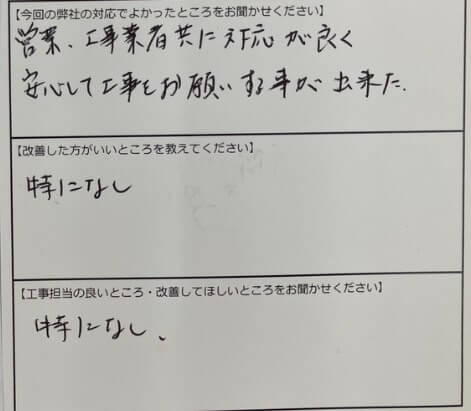 【今回の弊社の対応でよかったところをお聞かせください】
営業、工事業者共に対応が良く
安心して工事をお願いする事が出来た.
【改善した方がいいところを教えてください】
特になし
【工事担当の良いところ・改善してほしいところをお聞かせください】
特になし、